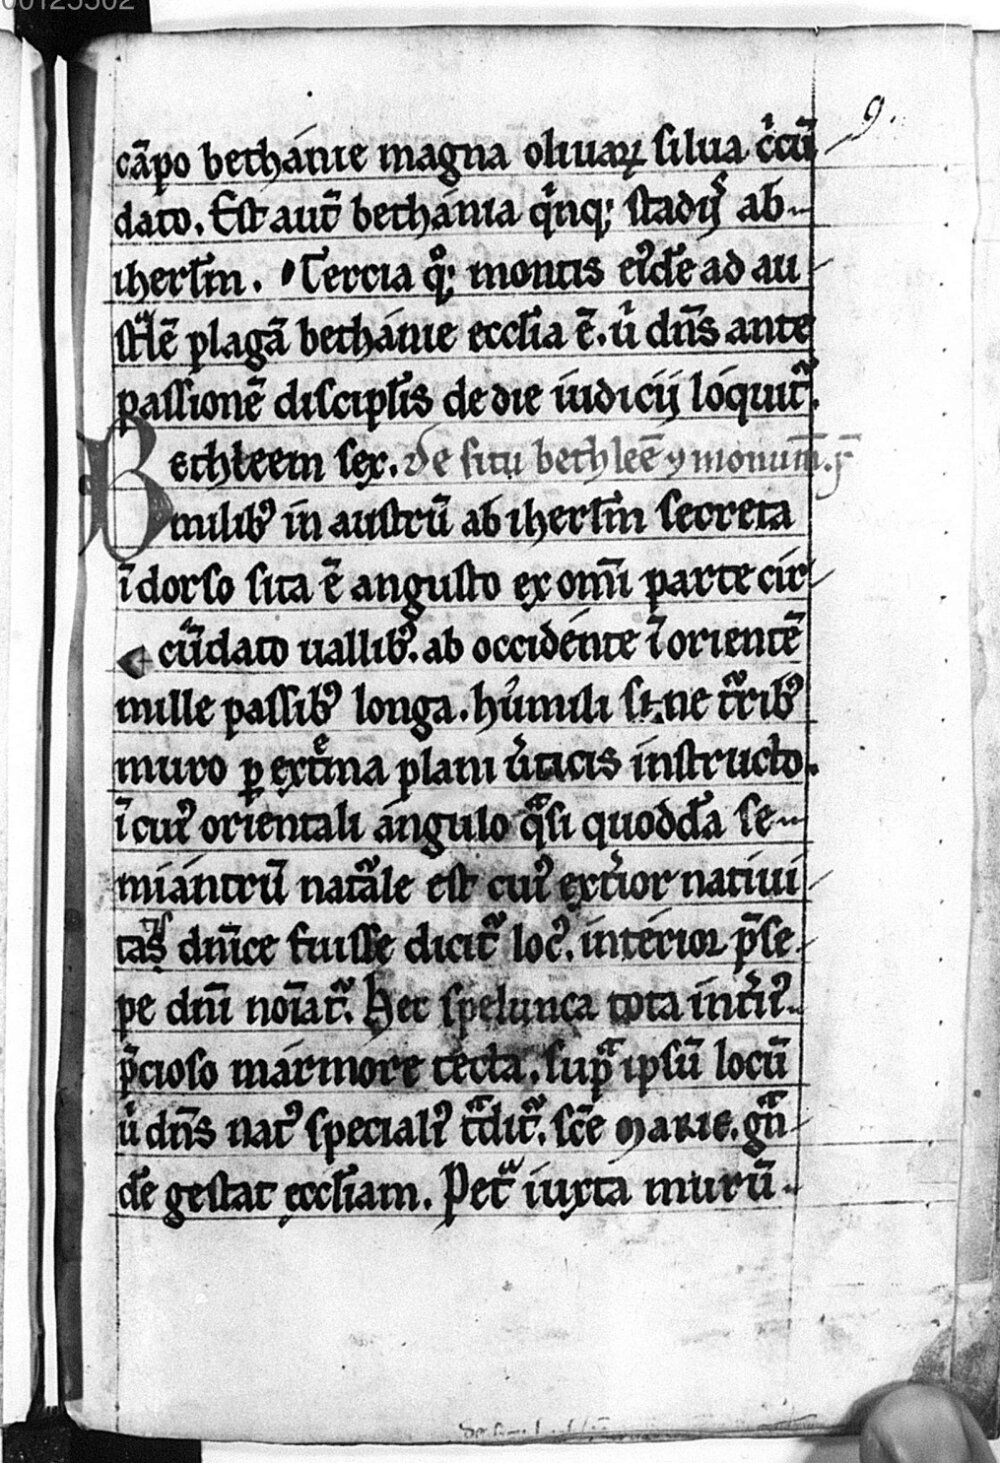 00125502
9.
cāpo bethanie magna oliuaꝝ silua c̓cū
dato. Est aut̄ bethania q̓nq; stadijs ab-
iherl̄m. Tercia q̊; montis eiꝰdē ad au
st͛lē plagā bethanie eccl̄ia ē. u̓ dn̄s ante
passionē discipl̄is de die iudicij loquit᷑.
Bethleem sex. de situ bethleē ⁊ monum̄.
milibꝰ in austrū ab iherl̄m secreta
ī dorso sita ē angusto ex om̄i parte cir
cūdato uallibꝰ. ab occidente ī orientē
mille passibꝰ longa. humili sine t᷑ribꝰ
muro ꝑ extͤma plani u̓ticis instructo.
ī cuiꝰ orientali angulo qͣsi quoddā se-
miantrū natͣle est cuiꝰ ext̓ior natiui
tatis dn̄ice fuisse dicit᷑ locꝰ. interior p̄se
pe dn̄i noīat᷑. Hec spelunca tota int̓iꝰ-
p̄cioso marmore tecta. supͣ ipsū locū
u̓ dn̄s natꝰ specialiꝰ tͣdit᷑. sc̄e marie. gͣn
dē gestat eccl̄iam. Pet᷑ iuxta murū-